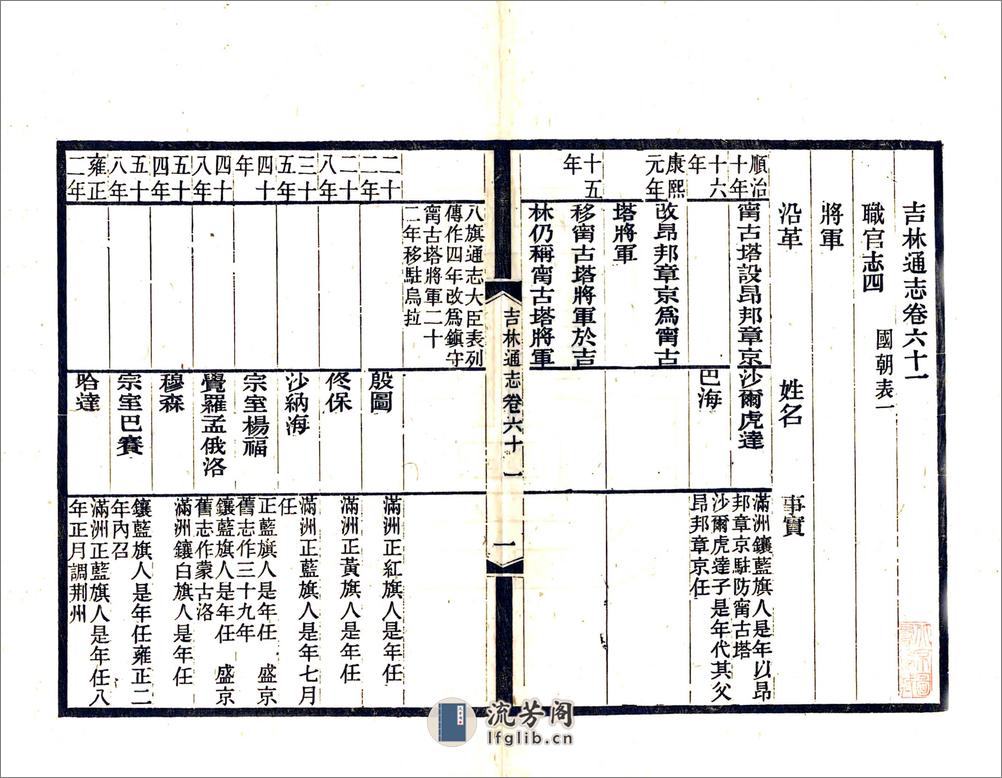 吉林通志卷六十一
職官志四　國朝表一
將軍
沿革　姓名　事實
順治
十年　甯古塔設昂邦章京　沙爾虎達　滿洲鑲藍旗人是年以昂
邦章京駐防甯古塔
十六
年　巴海　沙爾虎達子是年代其父
昂邦章京任
康熙
元年　改昂邦章京爲甯古
塔將軍
十五
年　移甯古塔將軍於吉
林仍稱甯古塔將軍
吉林通志卷六十一　一
八旗通志大臣表列
傳作四年改爲鎮守
甯古塔將軍二十
二年移駐烏拉
二十
二年　殷圖　滿洲正紅旗人是年任
二十
八年　佟保　滿洲正黃旗人是年任
三十
五年　沙納海　滿洲正藍旗人是年七月
任
四十
年　宗室楊福　正藍旗人是年任　盛京
舊志作三十九年
四十
八年　覺羅孟俄洛　鑲藍旗人是年任　盛京
舊志作蒙古洛
五十
四年　穆森　滿洲鑲白旗人是年任
五十
八年　宗室巴賽　鑲藍旗人是年任雍正二
年內召
雍正
二年　哈達　滿洲正藍旗人是年任八
年正月調荆州
流芳阁
lfglib.cn